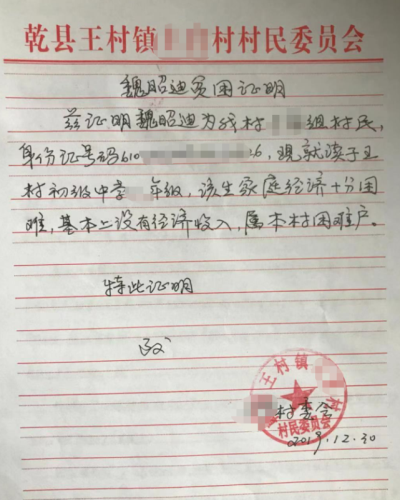 乾县王村镇 村村民委员会
魏昭迪贫困证明
兹证明魏昭迪为我村 组村民,
身份证号码610 6,现就读于王
村初级中学 年级,该生家庭经济十分困
难,基本上没有经济收入,属本村困难户。
特此证明
王村镇 村
村民委员会
村委会
2019.12.30